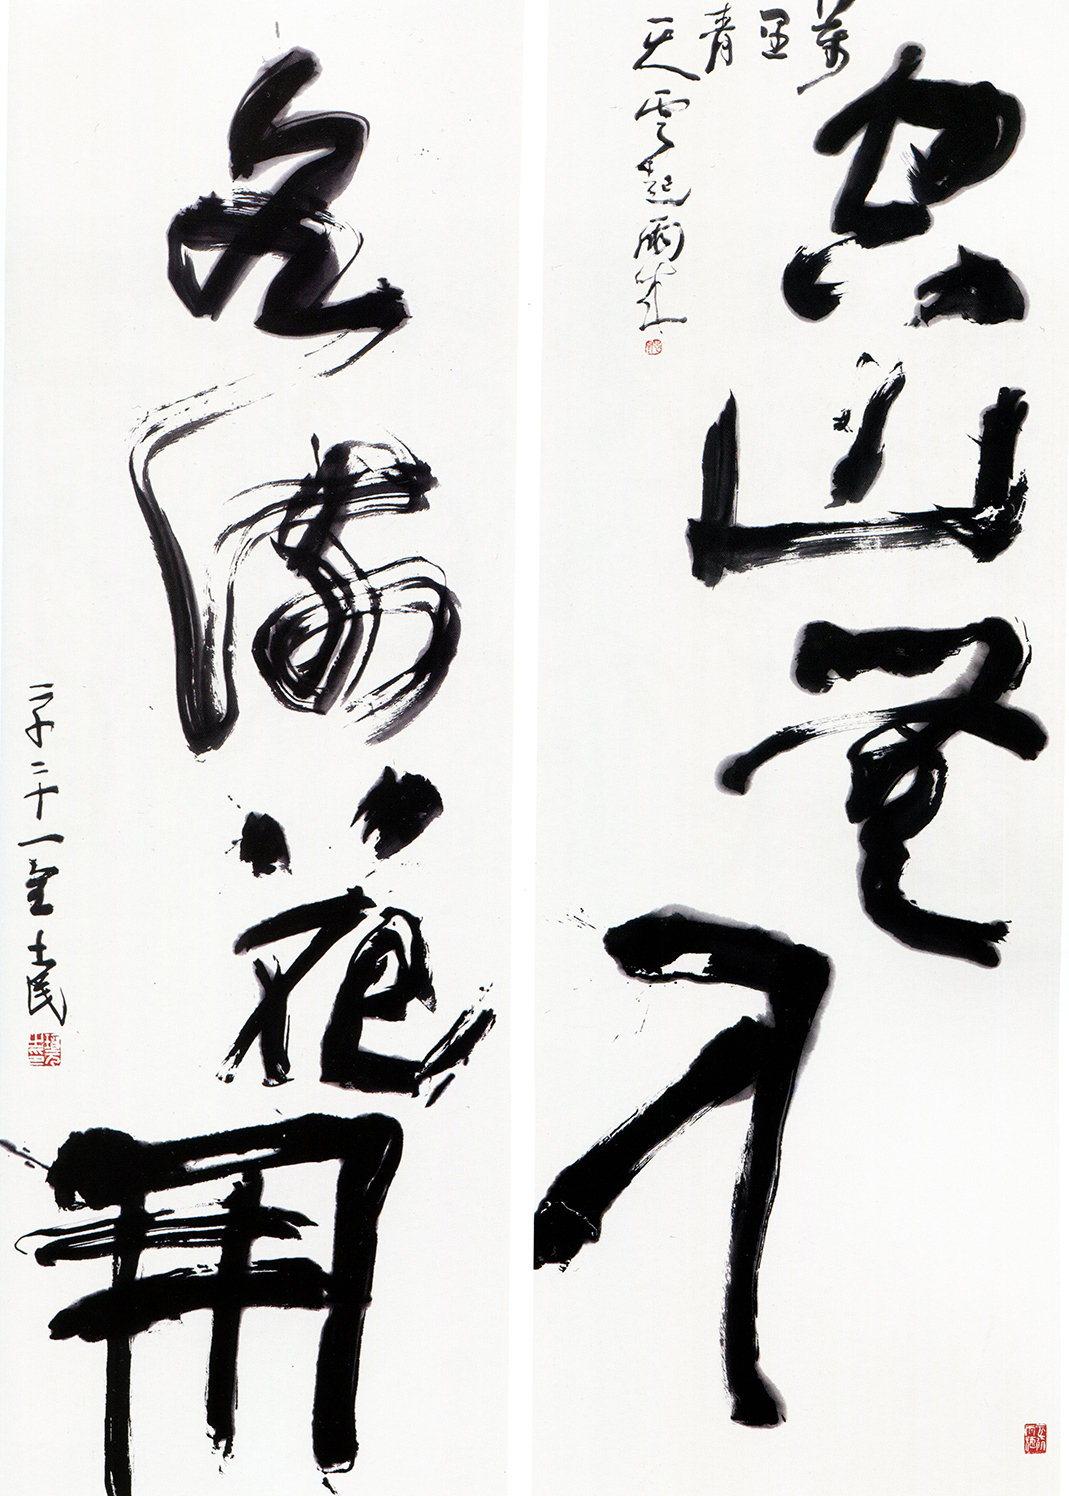 空山無人
萬里青天
雲起雨來
水流花開
二千二十一